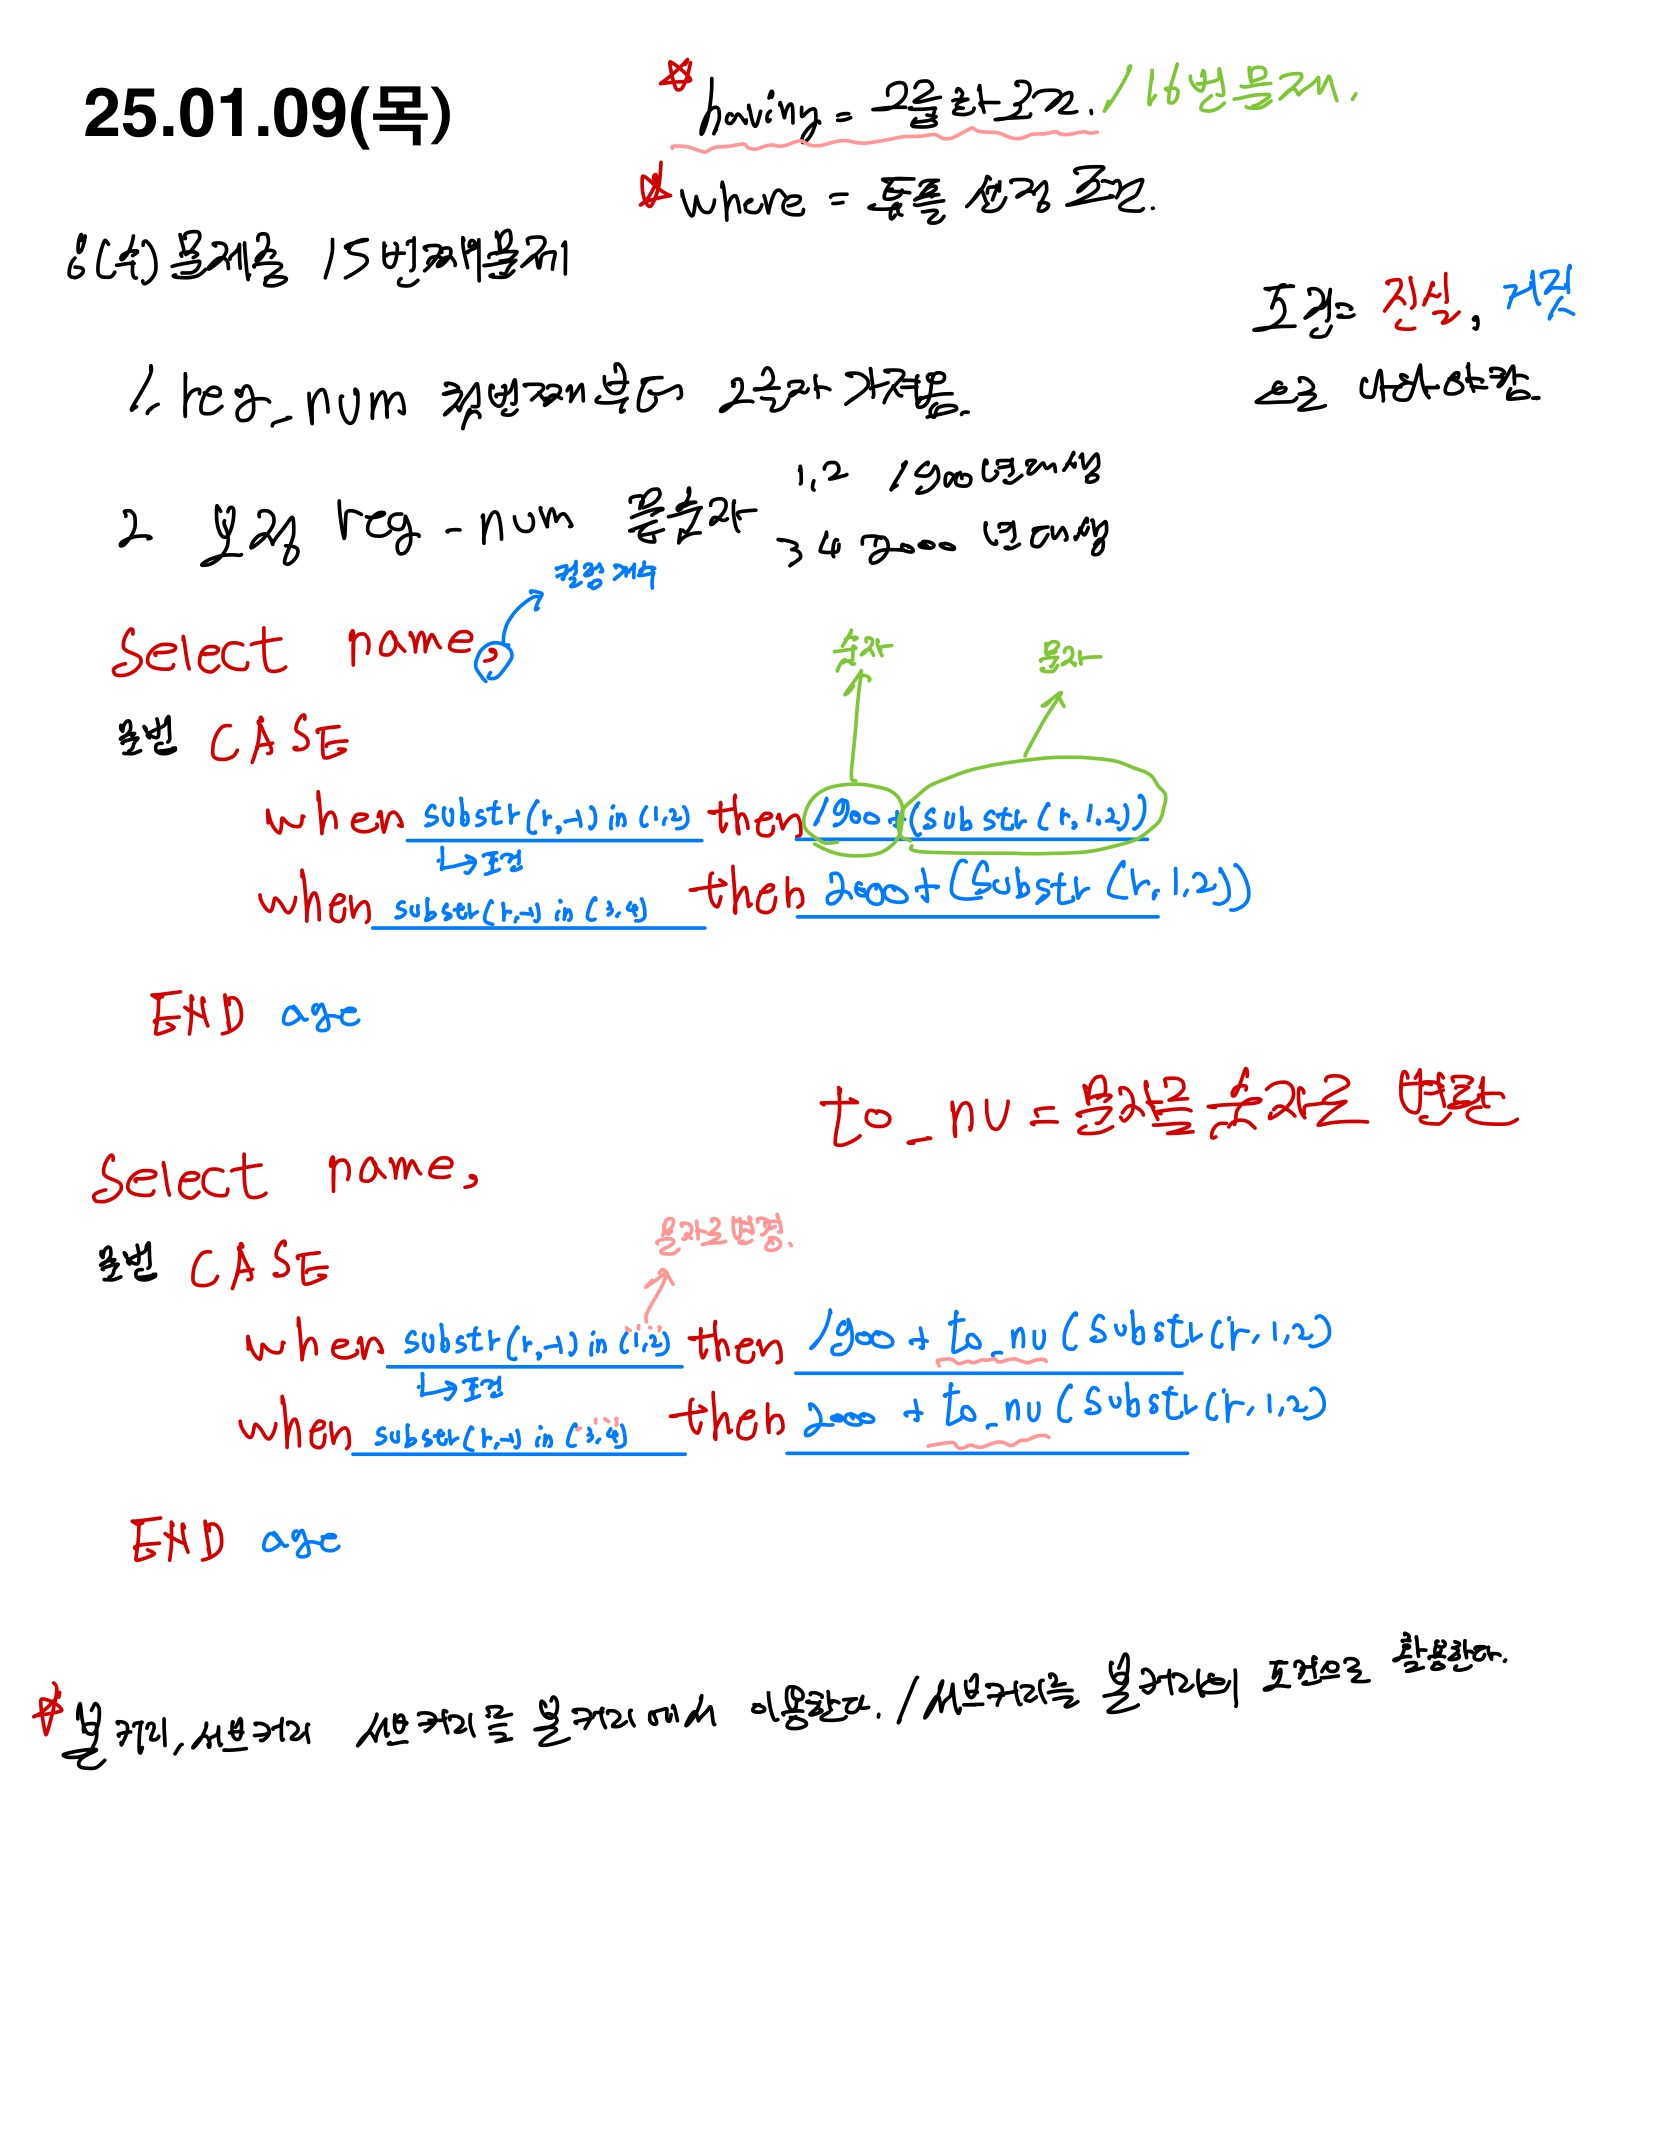 25.01.09(목)
having = 그룹화 조건. / 16번문제.
where = 튜플 선정 조건.
8(수) 문제중 15번째문제
조건= 진실, 거짓
으로 나와야함.
1. reg_num 첫번째부터 2글자 가져옴.
1,2 1900년대생
2 보정 reg-num 끝숫자
3 4 2000 년대생
컬럼 개수
Select name,
숫자 문자
문법 CASE
when substr(r,-1) in (1,2) then 1900+(substr(r,1,2))
↳ 조건
when substr(r,-1) in (3,4) then 2000+(Substr(r,1,2))
END age
to_nu = 문자를 숫자로 변환
Select name,
문자로변경.
문법 CASE
when substr(r,-1) in ('1','2') then 1900 + to_nu (Substr(r,1,2)
↳ 조건
when substr(r,-1) in ('3','4') then 2000 + to_nu (Substr(r,1,2)
END age
본쿼리, 서브쿼리 서브쿼리를 본쿼리에서 이용한다. / 서브쿼리를 본쿼리의 조건으로 활용한다.